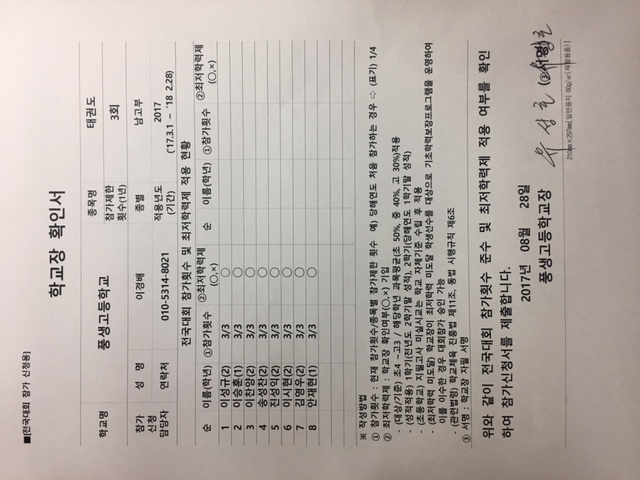 ■[전국대회 참가 신청용]
학교장 확인서
학교명 풍생고등학교 종목명 태권도
참가 신청 담당자 성 명 이경배 참가제한 횟수(1년) 3회
종별 남고부
연락처 010-5314-8021 적용년도 (기간) 2017 ('17.3.1 ~ '18 2.28)
전국대회 참가횟수 및 최저학력제 적용 현황
순 이름(학년) ①참가횟수 ②최저학력제 (○,×) 순 이름(학년) ①참가횟수 ②최저학력제 (○,×)
1 이성규(2) 3/3 ○
2 이승훈(1) 3/3 ○
3 이찬양(2) 3/3 ○
4 송성찬(2) 3/3 ○
5 진성익(2) 3/3 ○
6 이시현(2) 3/3 ○
7 김영우(2) 3/3 ○
8 안재현(1) 3/3 ○
※ 작성방법
① 참가횟수 : 현재 참가횟수/종목별 참가제한 횟수 예) 당해연도 처음 참가하는 경우 ⇨ (표기) 1/4
② 최저학력제 : 학교장 확인여부(○,×) 기입
- (대상/기준) 초4 ~고3 / 해당학년 과목평균(초 50%, 중 40%, 고 30%)적용
- (성적적용) 1학기(전년도 2학기말 성적), 2학기(당해연도 1학기말 성적)
- (초등학교) 지필고사 미실시교는 학교 자체기준 수립 후 적용
- (최저학력 미도달) 학교장이 최저학력 미도달 학생선수를 대상으로 기초학력보장프로그램을 운영하여
이를 이수한 경우 대회참가 승인 가능
- (관련법령) 학교체육 진흥법 제11조, 동법 시행규칙 제6조
③ 서명 : 학교장 자필 서명
위와 같이 전국대회 참가횟수 준수 및 최저학력제 적용 여부를 확인
하여 참가신청서를 제출합니다.
2017년 08월 28일
풍생고등학교장 유성호 (③서명)
210㎜×297㎜[일반용지 60g/㎡(재활용품)]